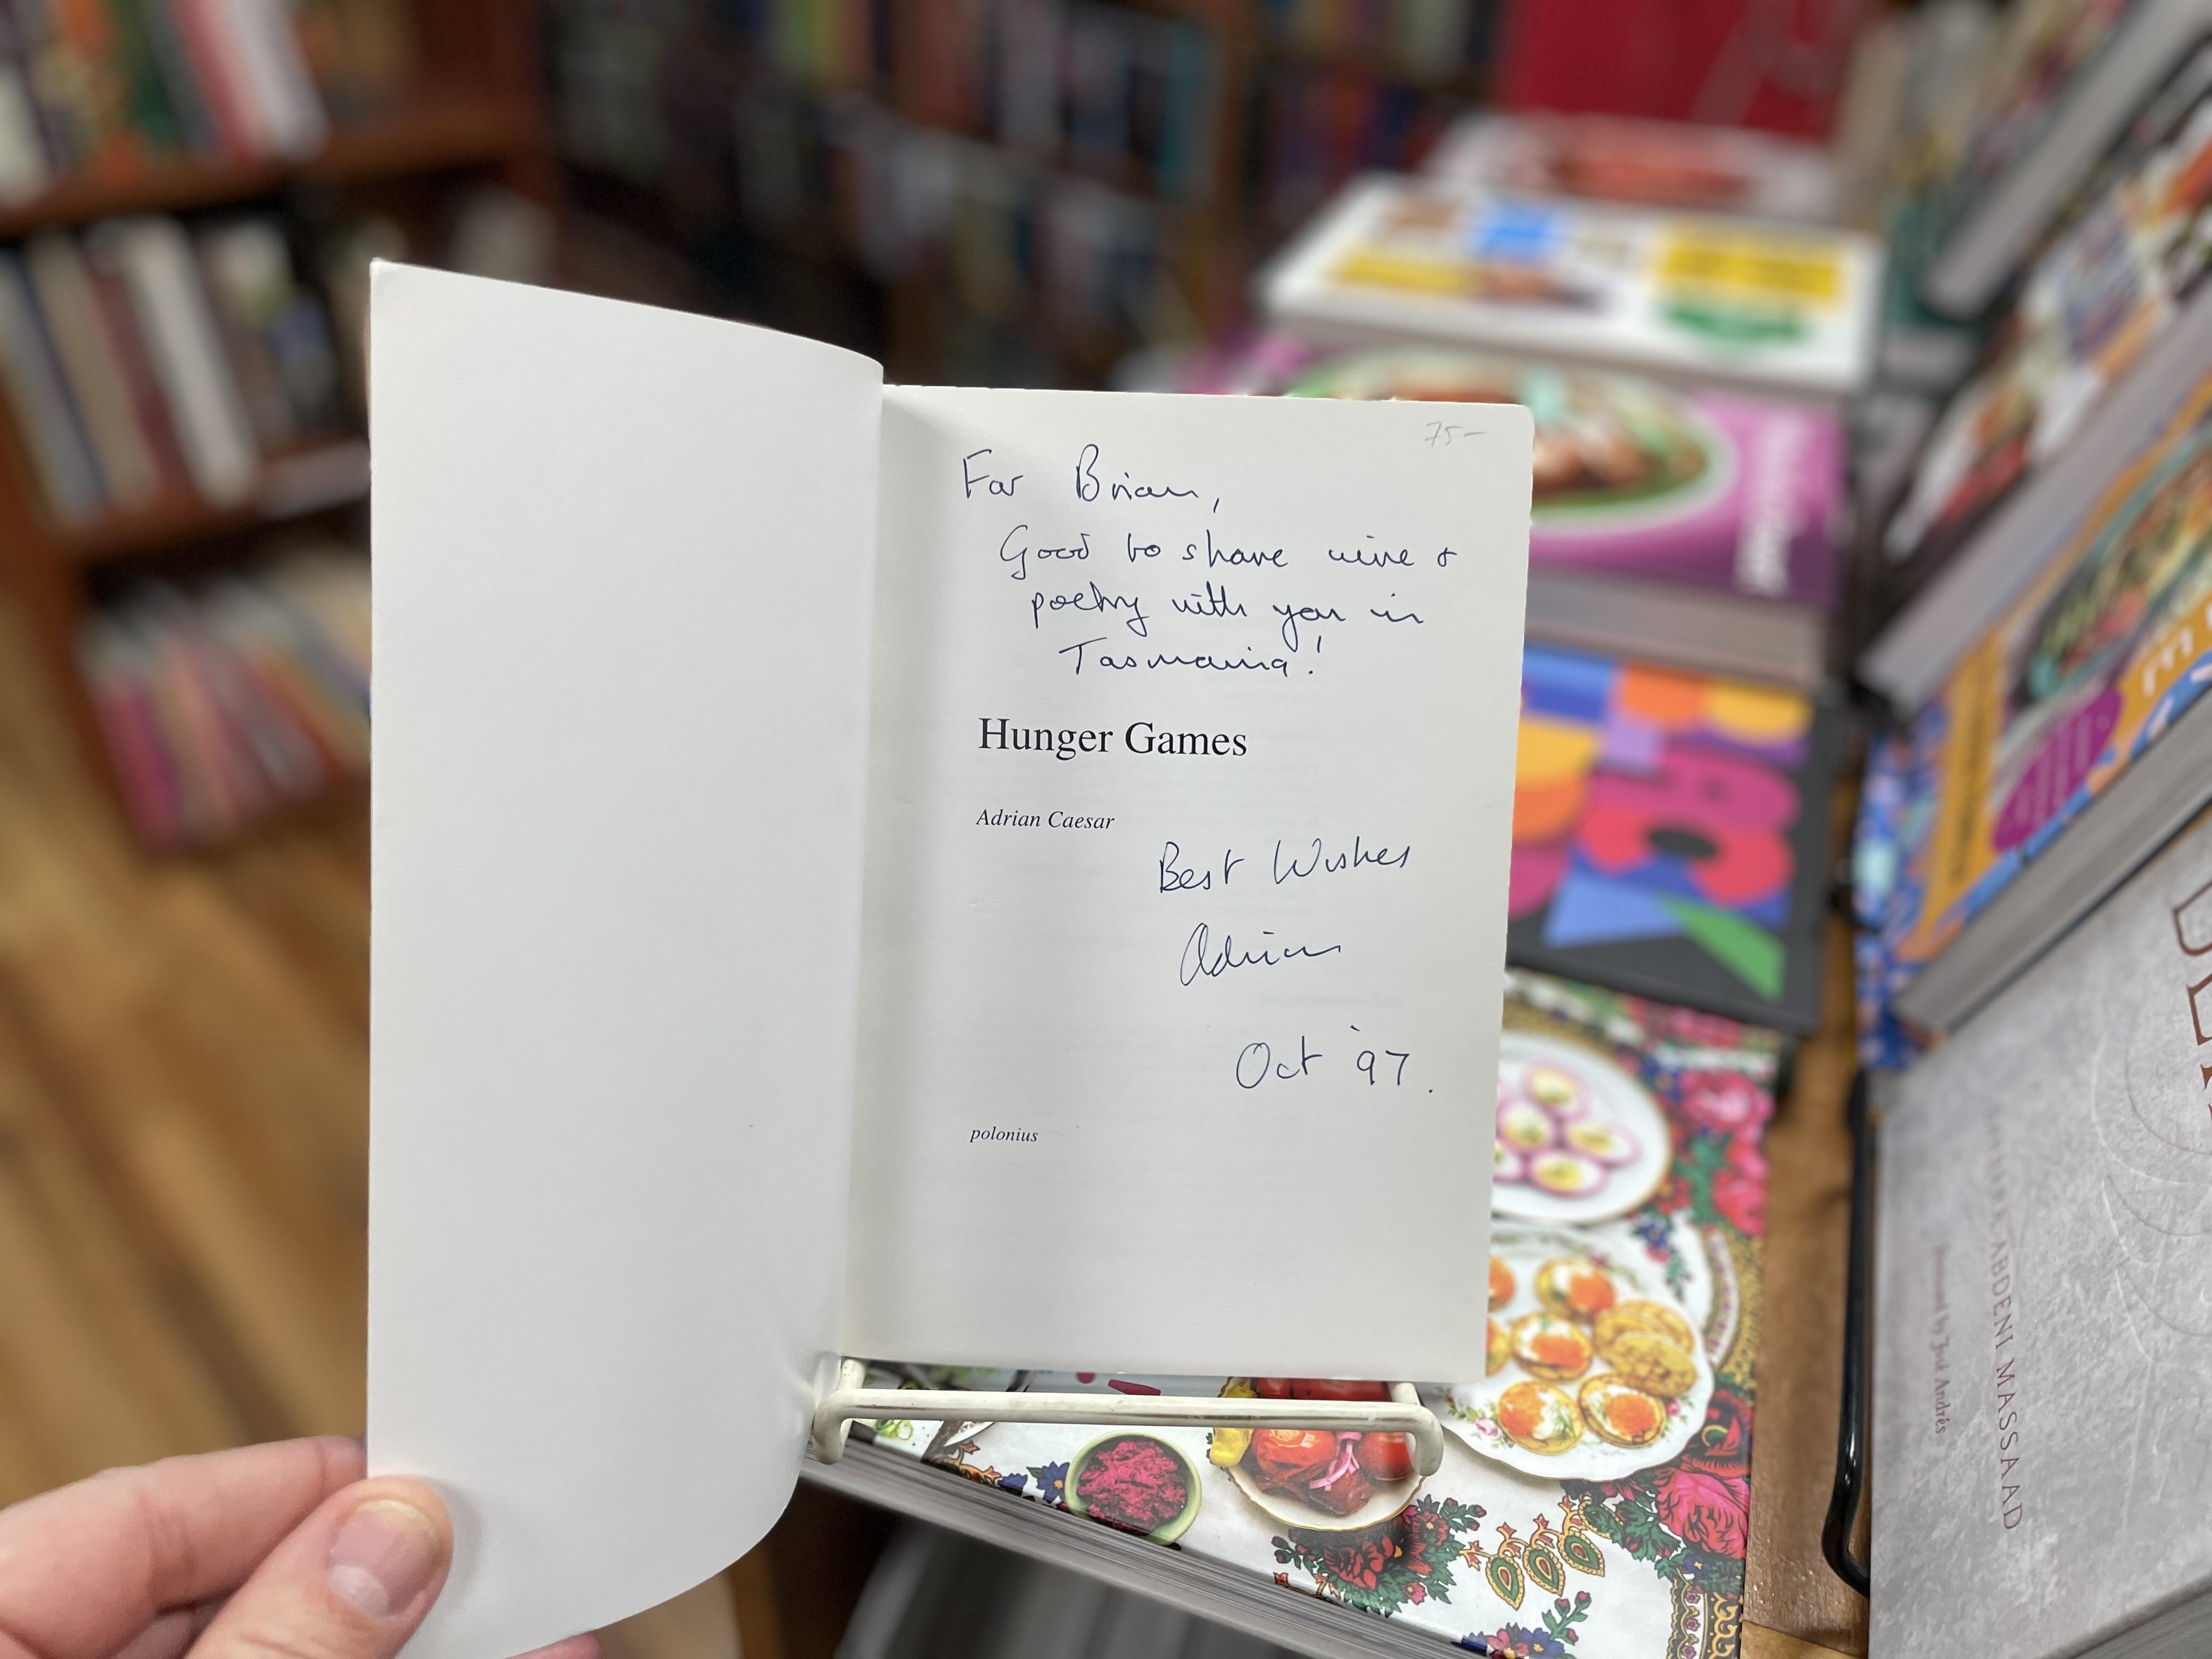 75-
For Brian,
Good to share wine &
poetry with you in
Tasmania!
Hunger Games
Adrian Caesar
Best Wishes
Adrian
Oct '97.
polonius
ABDENI MASSAAD
Foreword by José Andrés